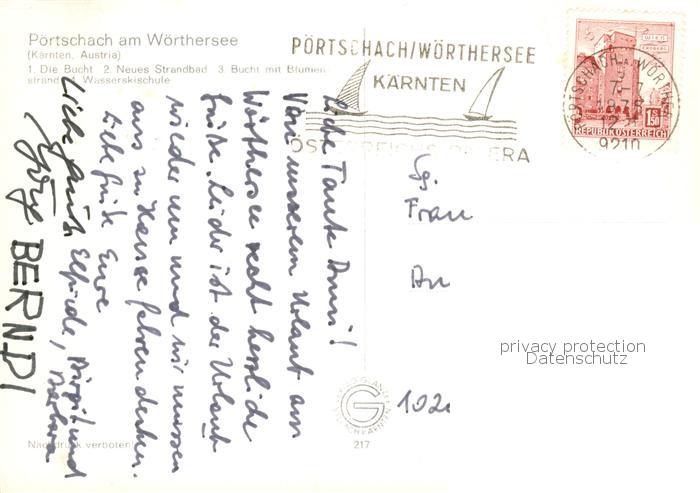 Pörtschach am Wörthersee
(Kärnten, Austria)
1. Die Bucht 2. Neues Strandbad 3. Bucht mit Blumen-
strand 4. Wasserskischule
PÖRTSCHACH/WÖRTHERSEE
KÄRNTEN
ÖSTERREICHS RIVIERA
WIEN
ERDBERG
1.50
REPUBLIK ÖSTERREICH
PÖRTSCHACH a. WÖRTHERSEE
9210
Liebe Tante Anni!
Von unserem Urlaub am
Wörthersee recht herzliche
Grüße. Leider ist der Urlaub
wieder um und wir müssen
ans zu Hause fahren denken.
Liebe Grüße Eure
Elfriede, Birgit und
Barbara
Liebe Grüße
Jörg
BERNDI
Sg.
Frau
An
102
privacy protection
Datenschutz
Nachdruck verboten!
217